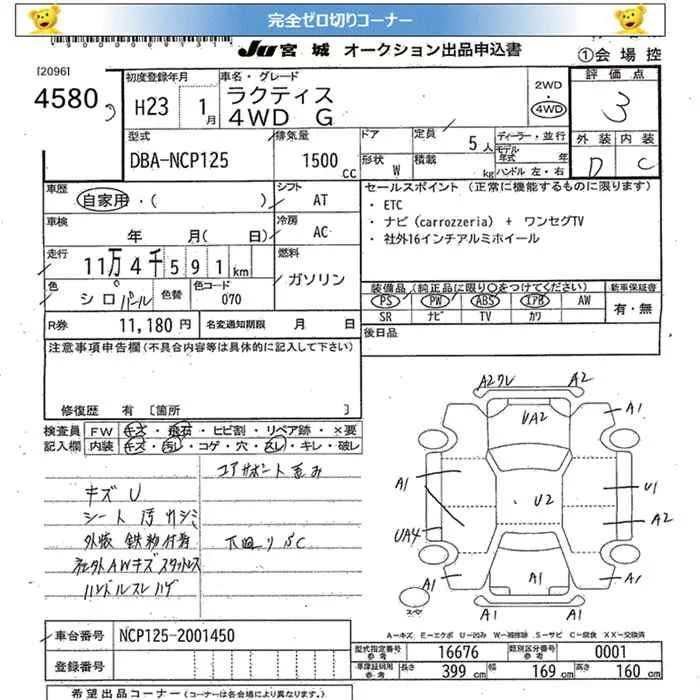 完全ゼロ切りコーナー
JU 宮城 オークション出品申込書
①会場控
[2096]
4580
初度登録年月
H23 1月
車名・グレード
ラクティス
4WD G
2WD
・
4WD
評価点
3
型式
DBA-NCP125
排気量
1500cc
ドア
定員
5人
形状
W
積載
kg
ディーラー・並行
モデル年式 年
ハンドル 左・右
外装 内装
D C
車歴
自家用・( )
シフト
AT
セールスポイント (正常に機能するものに限ります)
・ ETC
・ ナビ (carrozzeria) + ワンセグTV
・ 社外16インチアルミホイール
車検
年 月( 日)
冷房
AC
走行
11万4千591km
燃料
ガソリン
色
シロパール
色替
色コード
070
装備品 (純正品に限り○をつけてください)
新車保証書
PS PW ABS エアB AW
有・無
SR ナビ TV カワ
R券 11,180円
名変通知期限 月 日
後日品
注意事項申告欄 (不具合内容等は具体的に記入して下さい)
修復歴 有 [箇所 ]
検査員記入欄
FW キズ・飛石・ヒビ割・リペア跡・×要
内装 キズ・汚レ・コゲ・穴・スレ・キレ・破レ
コアサポート歪み
キズ U
シート 汚レ シミ
外装 鉄粉付着
下回り SC
社外AWキズ スタッドレス
ハンドルスレ ハゲ
A2ワレ A2
UA2
A1
A1
U2
U1
A2
UA4
A1
A1
A1
A1 A1
スペア
A…キズ E…エクボ U…凹み W…補修跡 S…サビ C…腐食 XX…交換済
車台番号 NCP125-2001450
型式指定番号 参考 16676
類別区分番号 参考 0001
登録番号
車庫証明用 参考 長さ 399 cm 幅 169 cm 高さ 160 cm
希望出品コーナー (コーナーは各会場により異なります。)